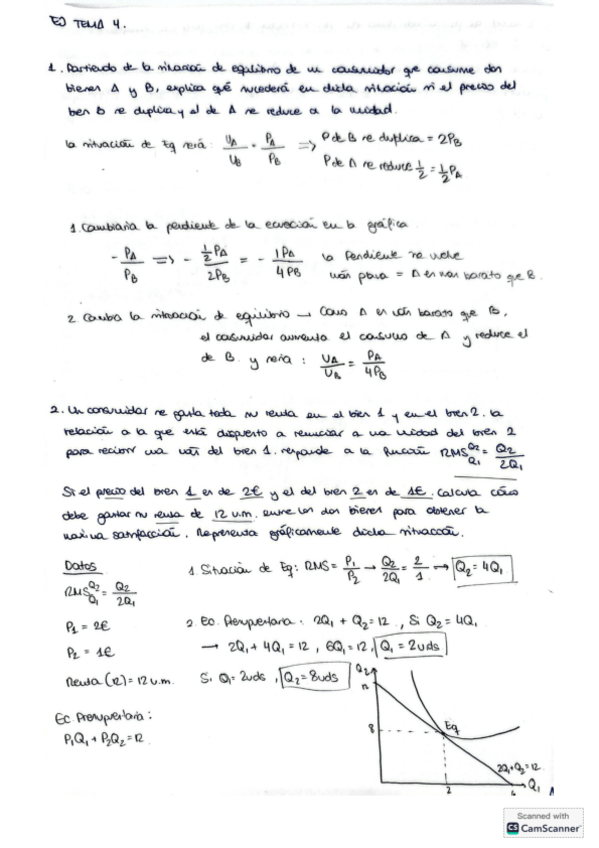 EJ TEMA 4.
1. Partiendo de la situación de equilibrio de un consumidor que consume dos
bienes A y B, explica qué sucederá en dicha situación si el precio del
bien B se duplica y el de A se reduce a la mitad.
la situación de Eq será: UA/UB = PA/PB => P de B se duplica = 2PB
P de A se reduce 1/2 = 1/2 PA
1. Cambiaria la pendiente de la ecuación en la gráfica
- PA/PB => - 1/2PA/2PB = - 1PA/4PB la Pendiente se vuelve
más plana = A es más barato que B.
2 Cambia la situación de equilibrio → Como A es más barato que B,
el consumidor aumenta el consumo de A y reduce el
de B. y sería: UA/UB = PA/4PB
2. Un consumidor se gasta toda su renta en el bien 1 y en el bien 2. la
relación a la que está dispuesto a renunciar a una unidad del bien 2
para recibir una más del bien 1. responde a la función RMS Q2 Q1 = Q2/2Q1
Si el precio del bien 1 es de 2€ y el del bien 2 es de 1€. Calcula cómo
debe gastar su renta de 12 u.m. entre los dos bienes para obtener la
máxima satisfacción. Representa gráficamente dicha situación.
Datos
RMS Q2 Q1 = Q2/2Q1
P1 = 2€
P2 = 1€
Renta (R) = 12 u.m.
Ec. Presupuestaria:
P1Q1 + P2Q2 = 12
1. Situación de Eq: RMS = P1/P2 → Q2/2Q1 = 2/1 → Q2 = 4Q1
2. Ec. Presupuestaria: 2Q1 + Q2 = 12, Si Q2 = 4Q1
→ 2Q1 + 4Q1 = 12, 6Q1 = 12, Q1 = 2uds
Si Q1 = 2uds, Q2 = 8uds
Q2
12
8
Eq
2Q1+Q2=12
2
6
Q1
Scanned with
CS CamScanner